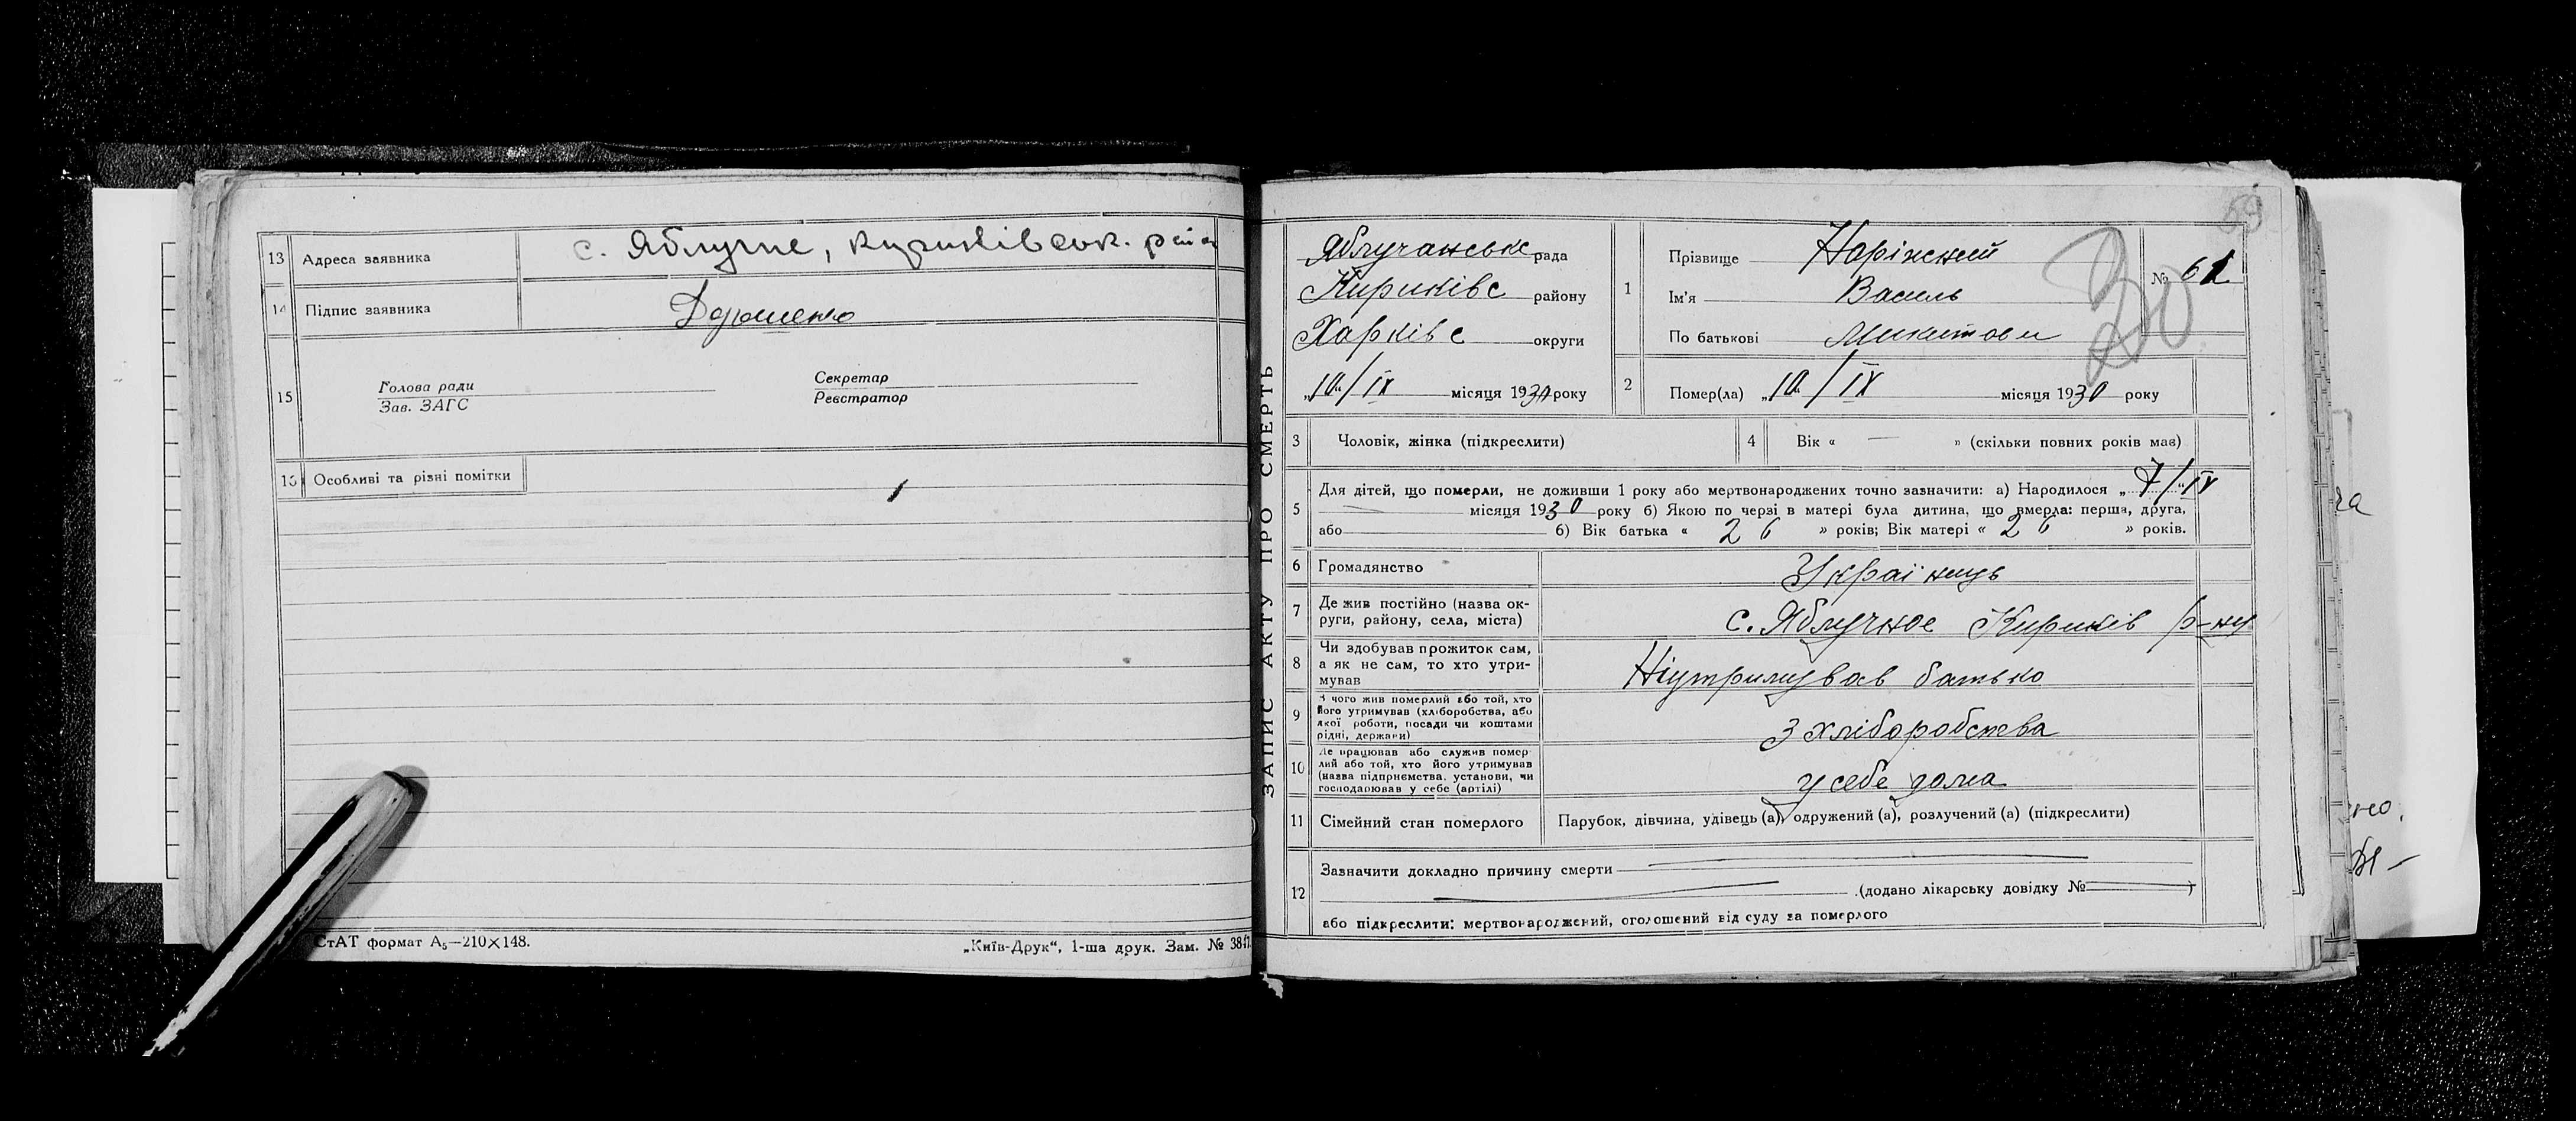 13 Адреса заявника с. Яблучне, Кириківськ. рай
14 Підпис заявника Дорошенко
15 Голова ради Секретар
Зав. ЗАГС Реєстратор
15 Особливі та різні помітки
СтАТ формат А₅—210×148.
„Київ-Друк“, 1-ша друк. Зам. №
ЗАПИС АКТУ ПРО СМЕРТЬ
59
30
Яблучанське рада
Кириківс району
Харківс округи
„10“/IX місяця 1930 року
1 Прізвище Наріжний
Ім'я Василь
По батькові Микитови
№ 61
2 Помер(ла) „10“/IX місяця 1930 року
3 Чоловік, жінка (підкреслити)
4 Вік « — » (скільки повних років мав)
5 Для дітей, що померли, не доживши 1 року або мертвонароджених точно зазначити: а) Народилося „7/“IX
місяця 1930 року б) Якою по черзі в матері була дитина, що вмерла: перша, друга,
або б) Вік батька « 26 » років; Вік матері « 26 » років.
6 Громадянство Українць
7 Де жив постійно (назва ок-
руги, району, села, міста) с. Яблучное Кириків р-ну
8 Чи здобував прожиток сам,
а як не сам, то хто утри-
мував Ні утримував батько
9 З чого жив померлий або той, хто
його утримував (хліборобства, або
якої роботи, посади чи коштами
рідні, держави) З хліборобства
10 Де працював або служив помер-
лий або той, хто його утримував
(назва підприємства, установи, чи
господарював у себе (артілі) у себе дома
11 Сімейний стан померлого Парубок, дівчина, удівець (а), одружений (а), розлучений (а) (підкреслити)
12 Зазначити докладно причину смерти
(додано лікарську довідку № )
або підкреслити: мертвонароджений, оголошений від суду за померлого